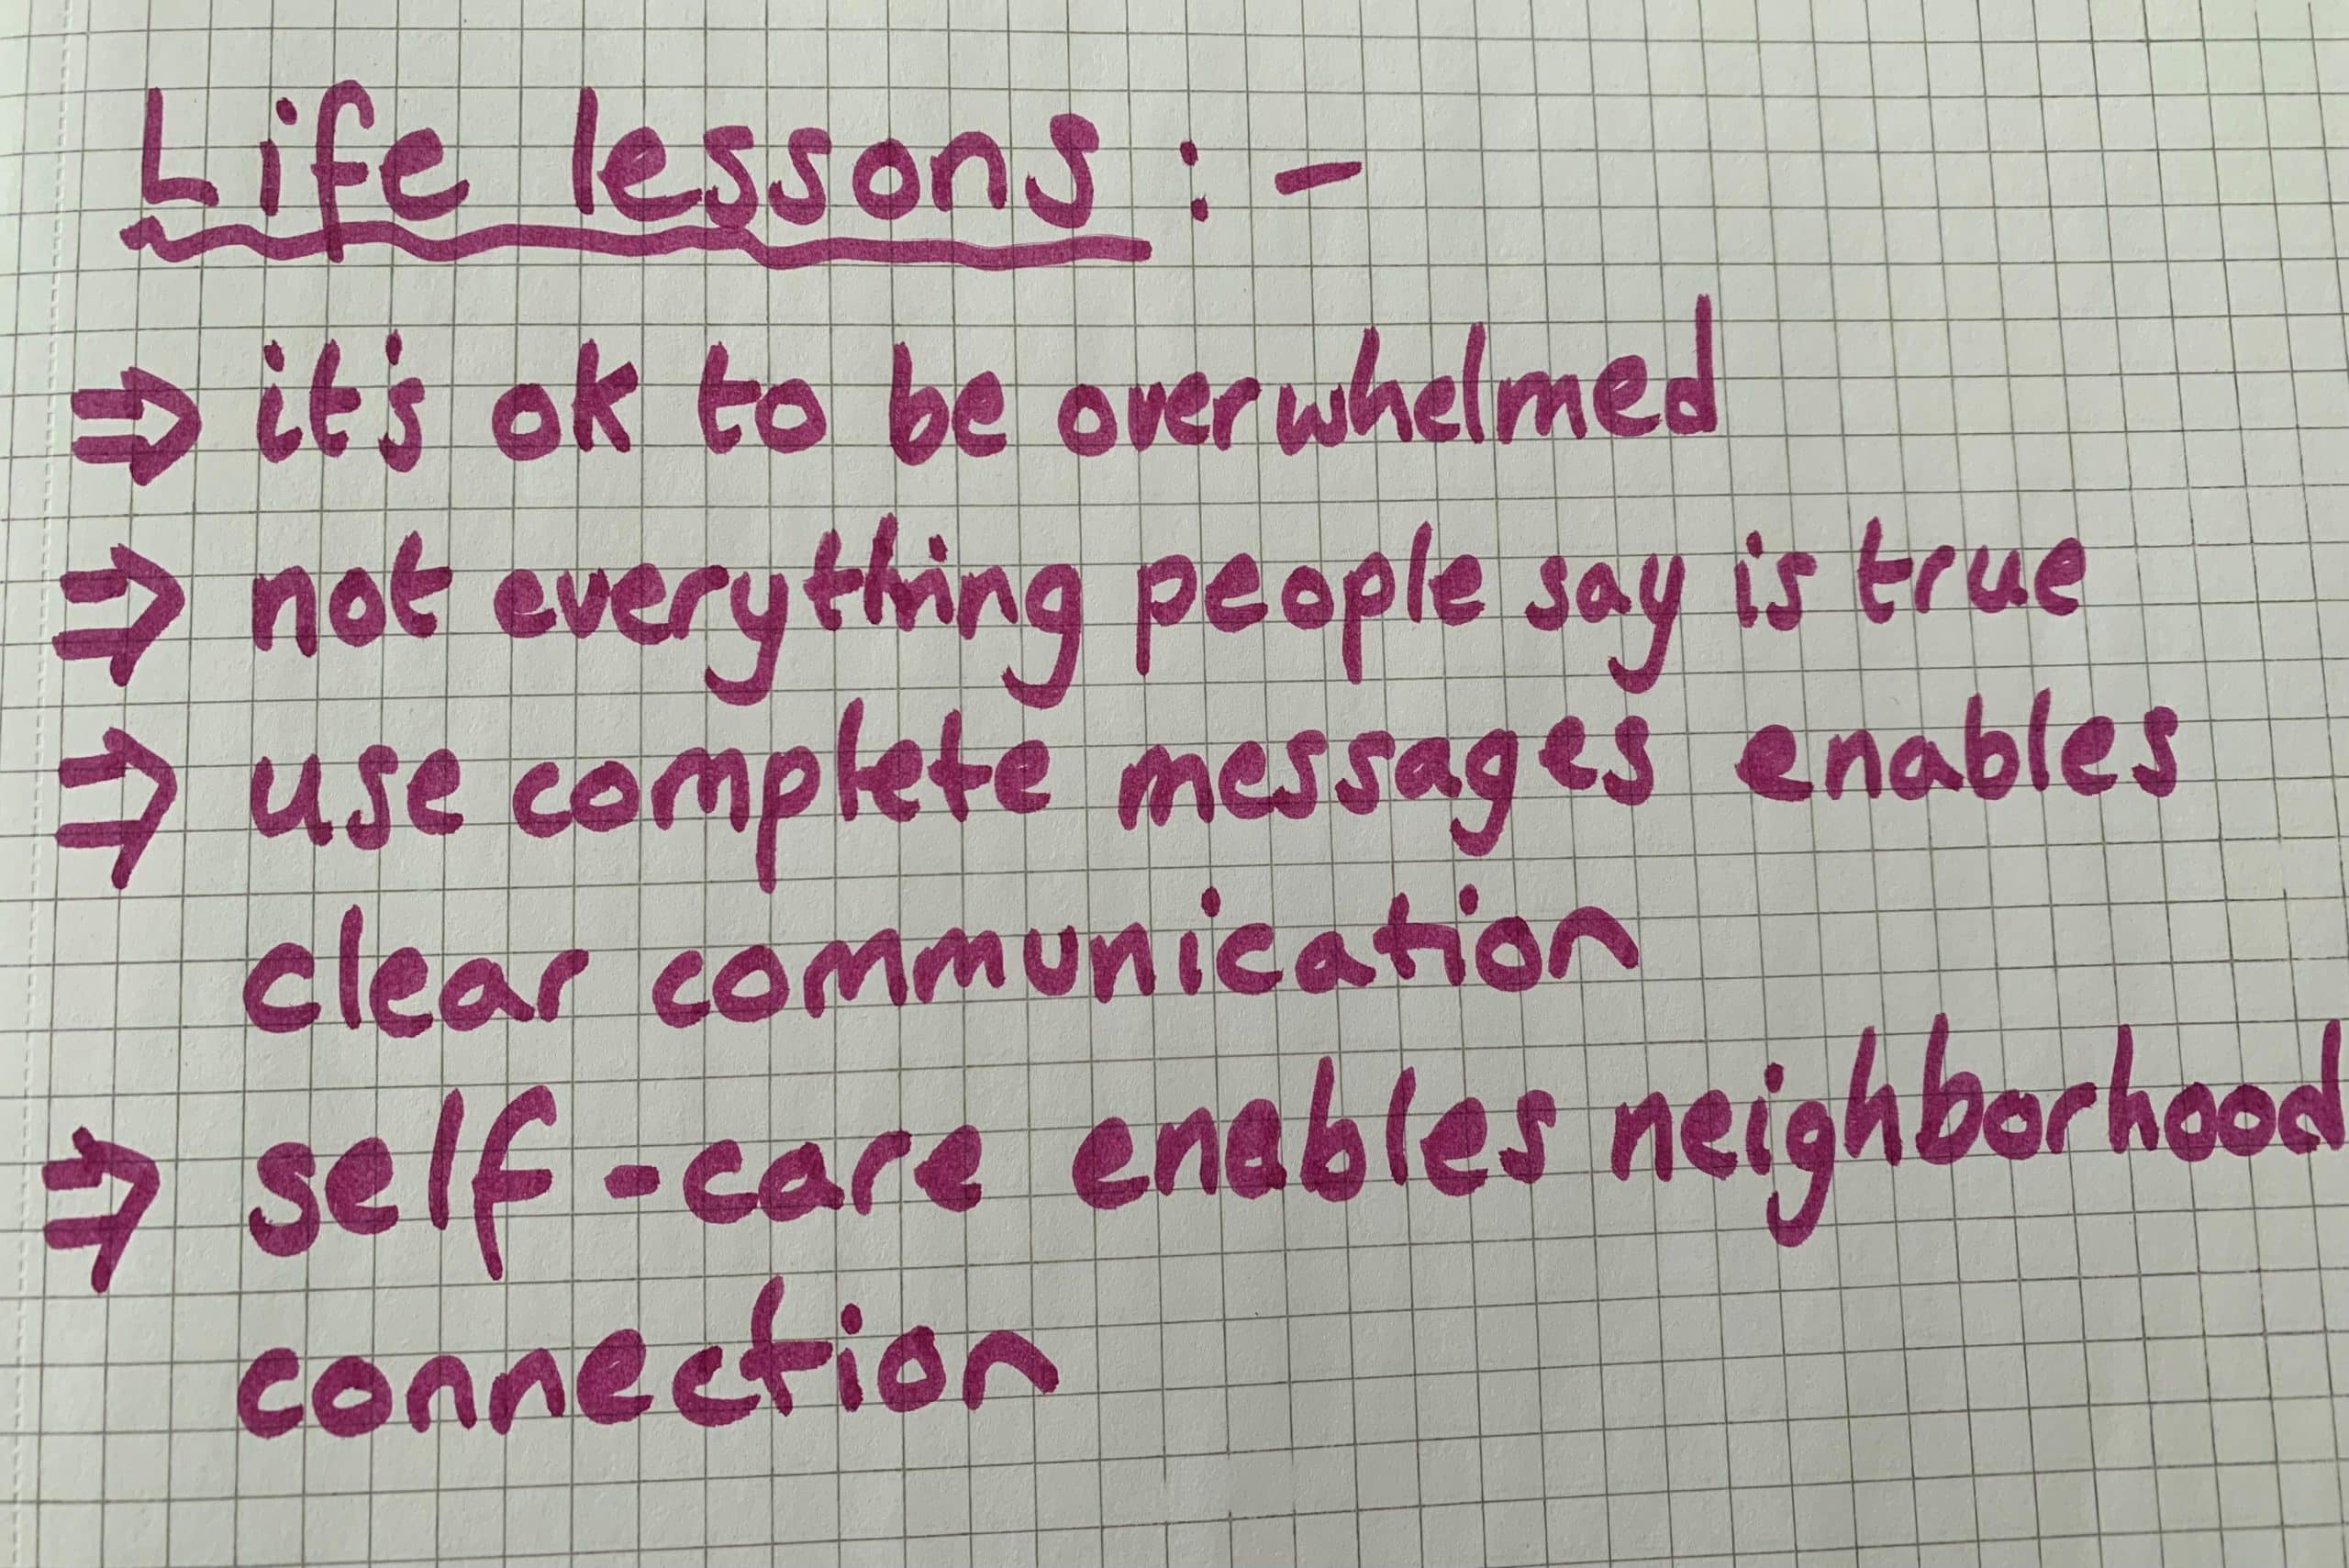 Life lessons :-
⇒ it's ok to be overwhelmed
⇒ not everything people say is true
⇒ use complete messages enables
clear communication
⇒ self-care enables neighborhood
connection